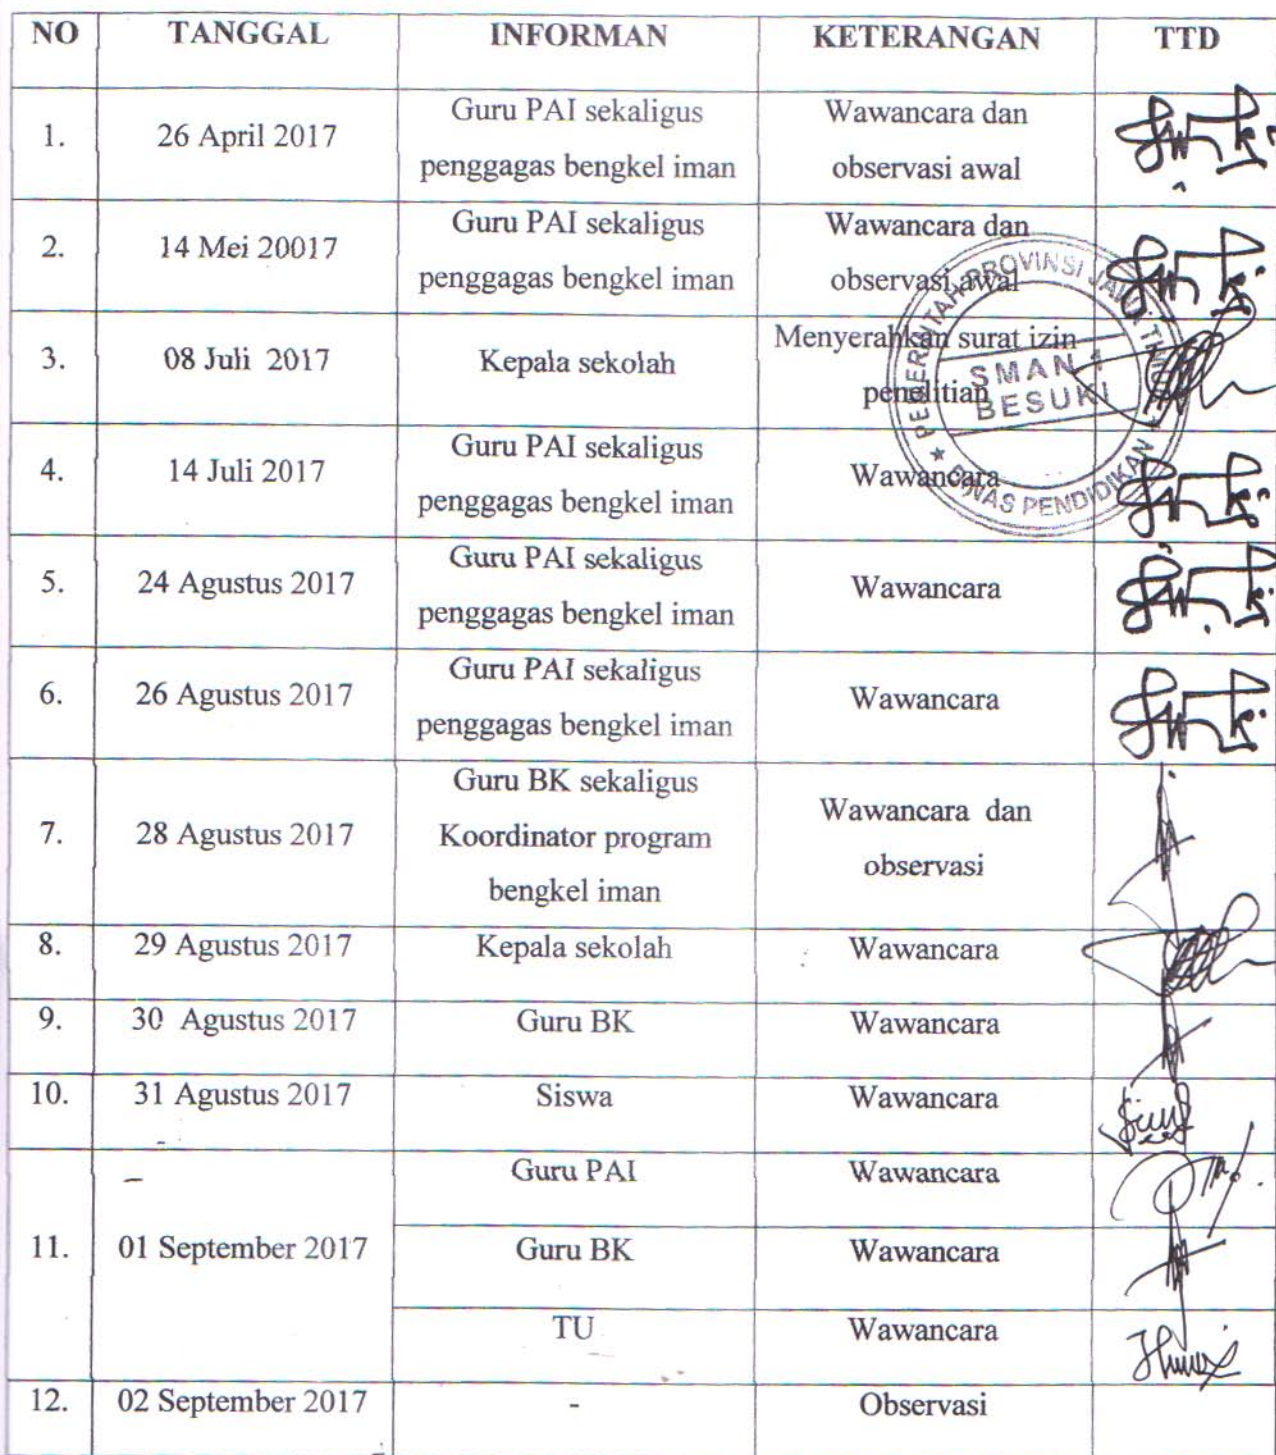 NO TANGGAL INFORMAN KETERANGAN TTD
1. 26 April 2017 Guru PAI sekaligus penggagas bengkel iman Wawancara dan observasi awal
2. 14 Mei 20017 Guru PAI sekaligus penggagas bengkel iman Wawancara dan observasi awal
3. 08 Juli 2017 Kepala sekolah Menyerahkan surat izin penelitian
PEMERINTAH PROVINSI JAWA TIMUR
SMAN 1
BESUKI
★ DINAS PENDIDIKAN
4. 14 Juli 2017 Guru PAI sekaligus penggagas bengkel iman Wawancara
5. 24 Agustus 2017 Guru PAI sekaligus penggagas bengkel iman Wawancara
6. 26 Agustus 2017 Guru PAI sekaligus penggagas bengkel iman Wawancara
7. 28 Agustus 2017 Guru BK sekaligus Koordinator program bengkel iman Wawancara dan observasi
8. 29 Agustus 2017 Kepala sekolah Wawancara
9. 30 Agustus 2017 Guru BK Wawancara
10. 31 Agustus 2017 Siswa Wawancara
11. 01 September 2017 Guru PAI Wawancara
Guru BK Wawancara
TU Wawancara
12. 02 September 2017 - Observasi